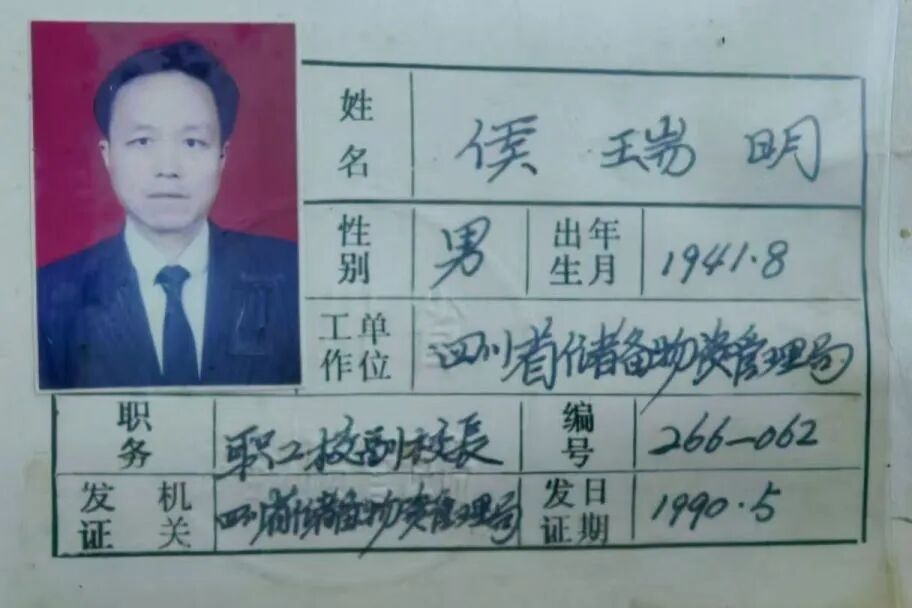 姓名 侯瑞明
性别 男 出生年月 1941.8
工作单位 四川省储备物资管理局
职务 职工校副校長 编号 266-062
发证机关 四川省储备物资管理局 发证日期 1990.5